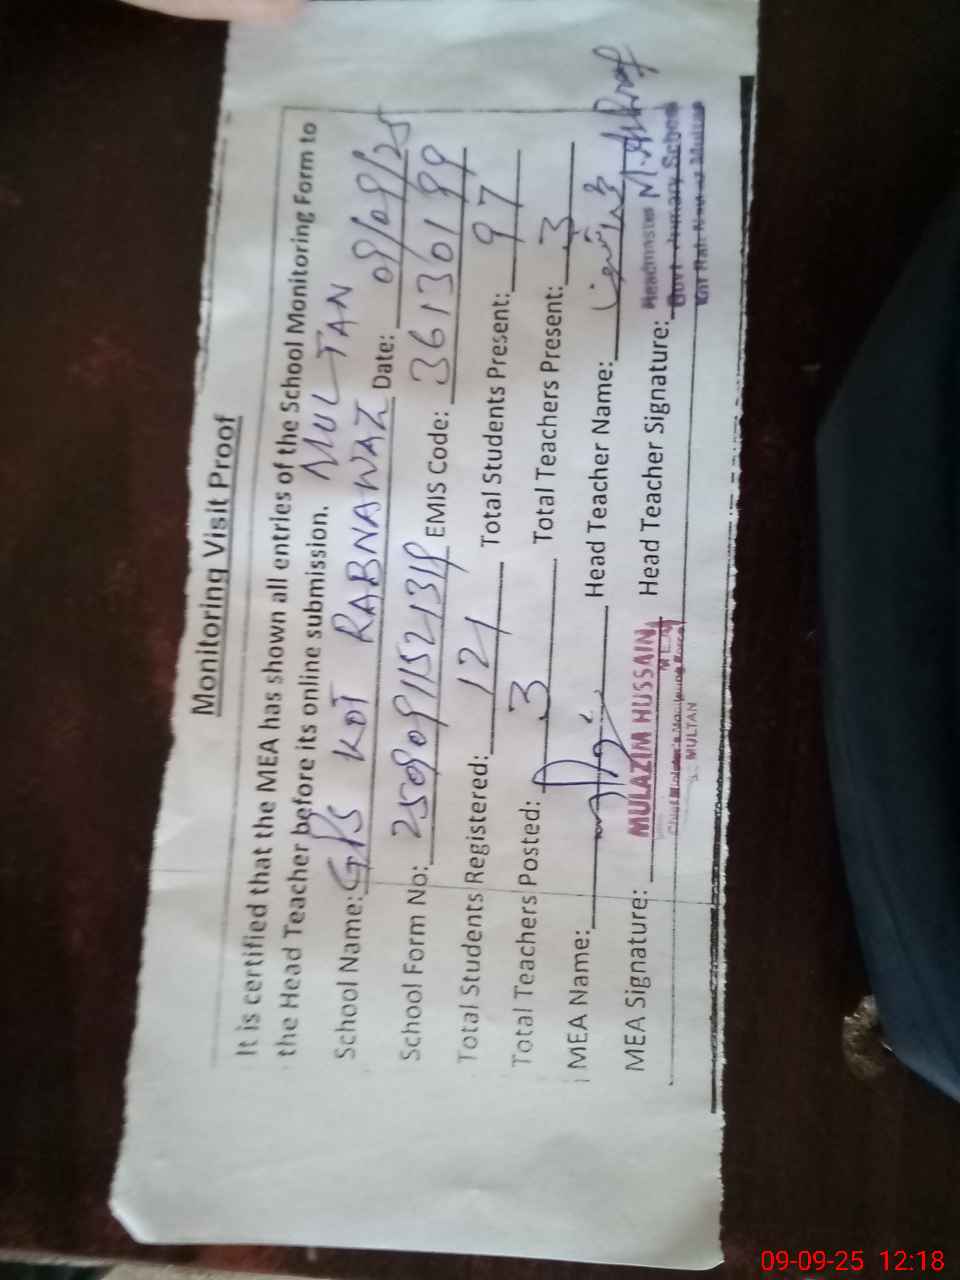 Monitoring Visit Proof
It is certified that the MEA has shown all entries of the School Monitoring Form to
the Head Teacher before its online submission. MULTAN
School Name: GPS KOT RABNAWAZ Date: 09/09/25
School Form No: EMIS Code: 36130199
Total Students Registered: 121 Total Students Present: 97
Total Teachers Posted: 3 Total Teachers Present: 3
MEA Name: Head Teacher Name:
MEA Signature: MULAZIM HUSSAIN Head Teacher Signature: M. Ashraf
MEA Headmaster
Chief Minister's Monitoring Force Govt Primary School
MULTAN Kot Rab Nawaz Multan
09-09-25 12:18